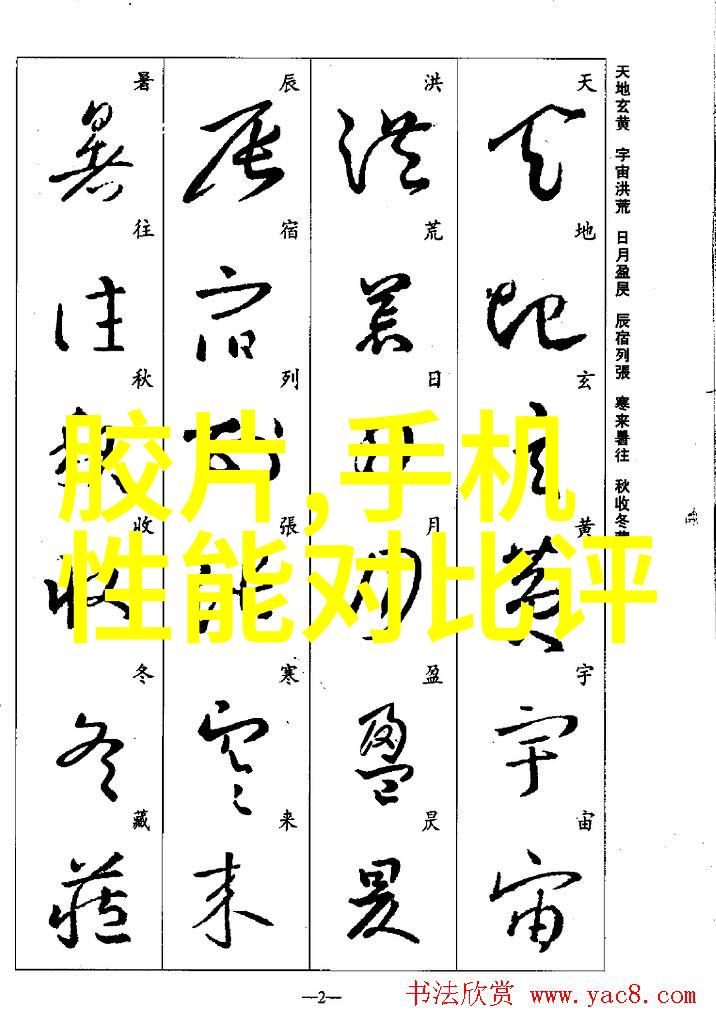 天地玄黄 宇宙洪荒 日月盈昃 辰宿列張 寒来暑往 秋收冬藏
天地玄黄宇宙
洪荒日月盈昃
辰宿列張寒来
暑往秋收冬藏
胶片,手机
性能对比评
—2—
书法欣赏 www.yac8.com